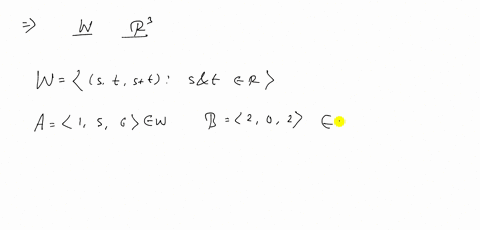 ⇒ W ℝ³
W = < (s, t, s+t) : s&t ∈ R >
A = < 1, 5, 6 > ∈ W B = < 2, 0, 2 > ∈